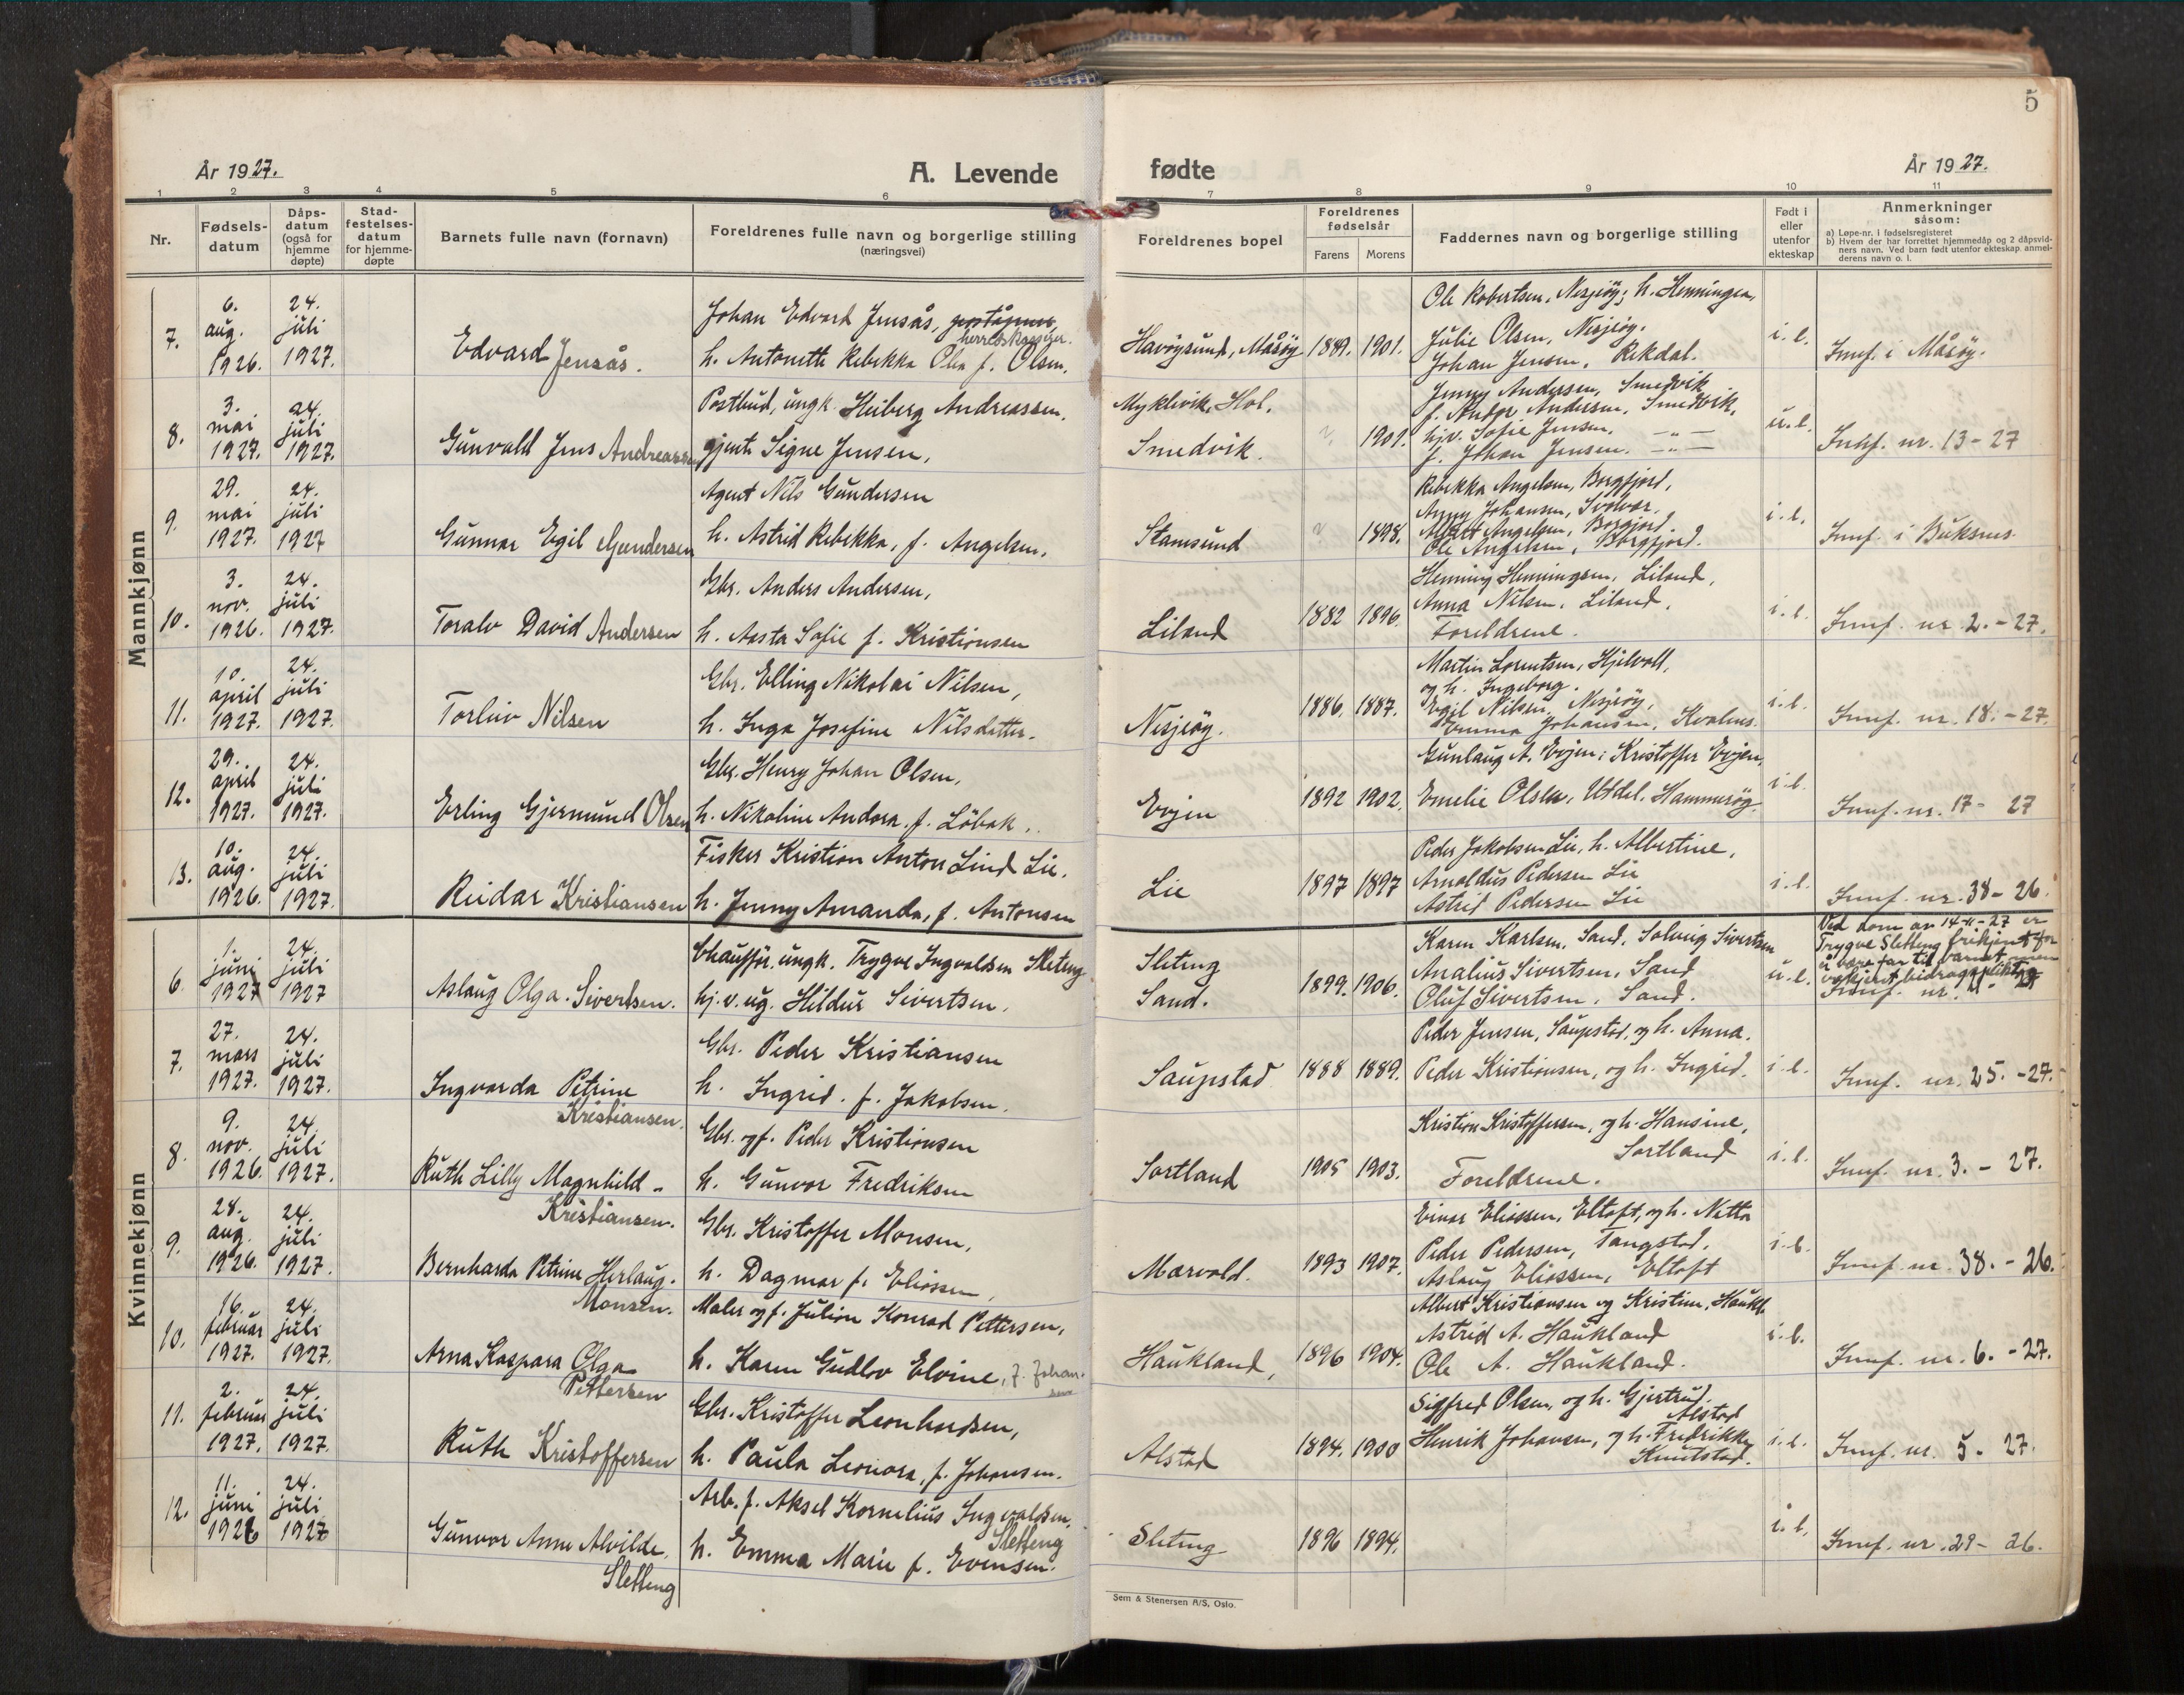 5
År 1927. A. Levende fødte År 1927.
1 2 3 4 5 6 7 8 9 10 11
Nr.
Fødsels-
datum
Dåps-
datum
(også for
hjemme
døpte)
Stad-
festelses-
datum
for hjemme-
døpte
Barnets fulle navn (fornavn)
Foreldrenes fulle navn og borgerlige stilling
(næringsvei)
Foreldrenes bopel
Foreldrenes
fødselsår
Farens Morens
Faddernes navn og borgerlige stilling
Født i
eller
utenfor
ekteskap
Anmerkninger
såsom:
a) Løpe-nr. i fødselsregisteret
b) Hvem der har forrettet hjemmedåp og 2 dåpsvid-
ners navn. Ved barn født utenfor ekteskap anmel-
derens navn o. l.
Mannkjønn
7.
6.
aug.
1926.
24.
juli
1927.
Edvard Jensås.
Johan Edvard Jensås,
herredskasserer.
h. Antonette Rebekka Olea f. Olsen.
Havøysund, Måsøy
1889. 1901.
Ole Robertsen, Nesjeøy; h. Henningea,
Julie Olsen, Nesjeøy.
Johan Jensen, Rekdal.
i. e.
Innf. i Måsøy.
8.
3.
mai
1927.
24.
juli
1927.
Gunvald Jens Andreassen
Postbud, ungk. Heiberg Andreassen.
gjente Signe Jensen,
Myklevik, Hol.
Smedvik.
1901.
Jenny Andersen, Smedvik
f. Andor Andersen, Smedvik,
hjv. Sofie Jensen. — " —
f. Johan Jensen. — " —
u. e.
Innf. nr. 13-27
9.
29.
mai
1927.
24.
juli
1927
Gunnar Egil Gundersen
Agent Nils Gundersen
h. Astrid Rebekka, f. Angelsen.
Stamsund
1898.
Rebekka Angelsen, Borgfjord,
Anny Johansen, Svolvær.
Albert Angelsen, Borgfjord.
Ole Angelsen, Borgfjord.
i. e.
Innf. i Buksnes.
10.
3.
nov.
1926.
24.
juli
1927.
Toralv David Andersen
Gbr. Anders Andersen,
h. Aasta Sofie f. Kristiansen
Liland
1882 1896.
Henning Henningsen, Liland,
Anna Nilsen, Liland,
Foreldrene.
i. e.
Innf. nr. 2.-27.
11.
10.
april
1927.
24.
juli
1927.
Torleiv Nilsen
Gbr. Elling Nikolai Nilsen,
h. Inga Josefine Nilsdatter.
Nesjeøy.
1886. 1887.
Martin Lorentsen, Hjelvoll,
og h. Ingeborg.
Egil Nilsen, Nesjeøy,
Emma Johansen, Kvalnes.
i. e.
Innf. nr. 18.-27.
12.
29.
april
1927.
24.
juli
1927.
Erling Gjermund Olsen
Gbr. Henry Johan Olsen,
h. Nikoline Andora. f. Löbak..
Evjen
1892 1902.
Gunlaug A. Evjen; Kristoffer Evjen,
Emelie Olsen, Utdel. Hammerøy.
i. e.
Innf. nr. 17- 27
13.
10.
aug.
1926.
24.
juli
1927.
Reidar Kristiansen
Fisker Kristian Anton Lind Lie.
h. Jenny Amanda, f. Antonsen
Lie
1897 1897
Peder Jakobsen Lie, h. Albertine,
Arnoldus Pedersen Lie
Astrid Pedersen Lie
i. e.
Innf. nr. 38-26.
Kvinnekjønn
6.
1.
juni
1927
24.
juli
1927
Aslaug Olga. Sivertsen.
Chauffør, ungk. Trygve Ingvaldsen Sletteng
hj. v. ug. Hildur Sivertsen,
Sleteng
Sand.
1899. 1906.
Karen Karlsen, Sand, Solveig Sivertsen
Analius Sivertsen, Sand
Oluf Sivertsen, Sand.
u. e.
Ved dom av 14-11-27 er
Trygve Sletteng frikjent for
å være far til barnet, men
bidragspliktig
Innf. nr.
7.
27.
mars
1927.
24.
juli
1927.
Ingvarda Petrine
Kristiansen.
Gbr. Peder Kristiansen
h. Ingrid. f. Jakobsen.
Saupstad
1888 1889.
Peder Jensen, Saupstad, og h. Anna.
Peder Kristiansen, og h. Ingrid.
i. e.
Innf. nr. 25.-27.
8.
9.
nov.
1926.
24.
juli
1927.
Ruth Lilly Magnhild -
Kristiansen.
Gbr. og f. Peder Kristiansen
h. Gunvor Fredriksen
Sortland
1905 1903.
Kristian Kristoffersen, og h. Hansine,
Sortland
Foreldrene.
i. e.
Innf. nr. 3. - 27.
9.
28.
aug.
1926.
24.
juli
1927.
Bernharda Petrine Herlaug.
Monsen.
Gbr. Kristoffer Monsen,
h. Dagmar f. Eliassen,
Mærvold.
1893 1907.
Einar Eliassen, Eltoft, og h. Netta
Peder Pedersen, Tangstad,
Aslaug Eliassen, Eltoft
i. e.
Innf. nr. 38.-26.
10.
16.
februar
1927.
24.
juli
1927.
Arna Kaspara Olga
Pettersen
Maler og f. Julian Konrad Pettersen,
h. Karen Gudlov Elvine, f. Johan-
sen
Haukland,
1896 1904.
Albert Kristiansen og Kristine, Haukl.
Astrid A. Haukland
Ole A. Haukland.
i. e.
Innf. nr. 6. -27.
11.
2.
februar
1927.
24.
juli
1927.
Ruth Kristoffersen
Gbr. Kristoffer Leonhardsen,
h. Paula Leonora, f. Johansen.
Alstad
1894. 1900
Sigfred Olsen, og h. Gjertrud.
Alstad
Henrik Johansen, og h. Fredrikke,
Knutstad.
i. e.
Innf. nr. 5- 27.
12.
11.
juni
1926
24.
juli
1927
Gunvor Anne Alvilde.
Sletteng
Arb. f. Aksel Kornelius Ingvaldsen,
Sletteng
h. Emma Marie f. Evensen.
Sleteng
1896 1894.
i. e.
Innf. nr. 29- 26.
Sem & Stenersen A/S, Oslo.